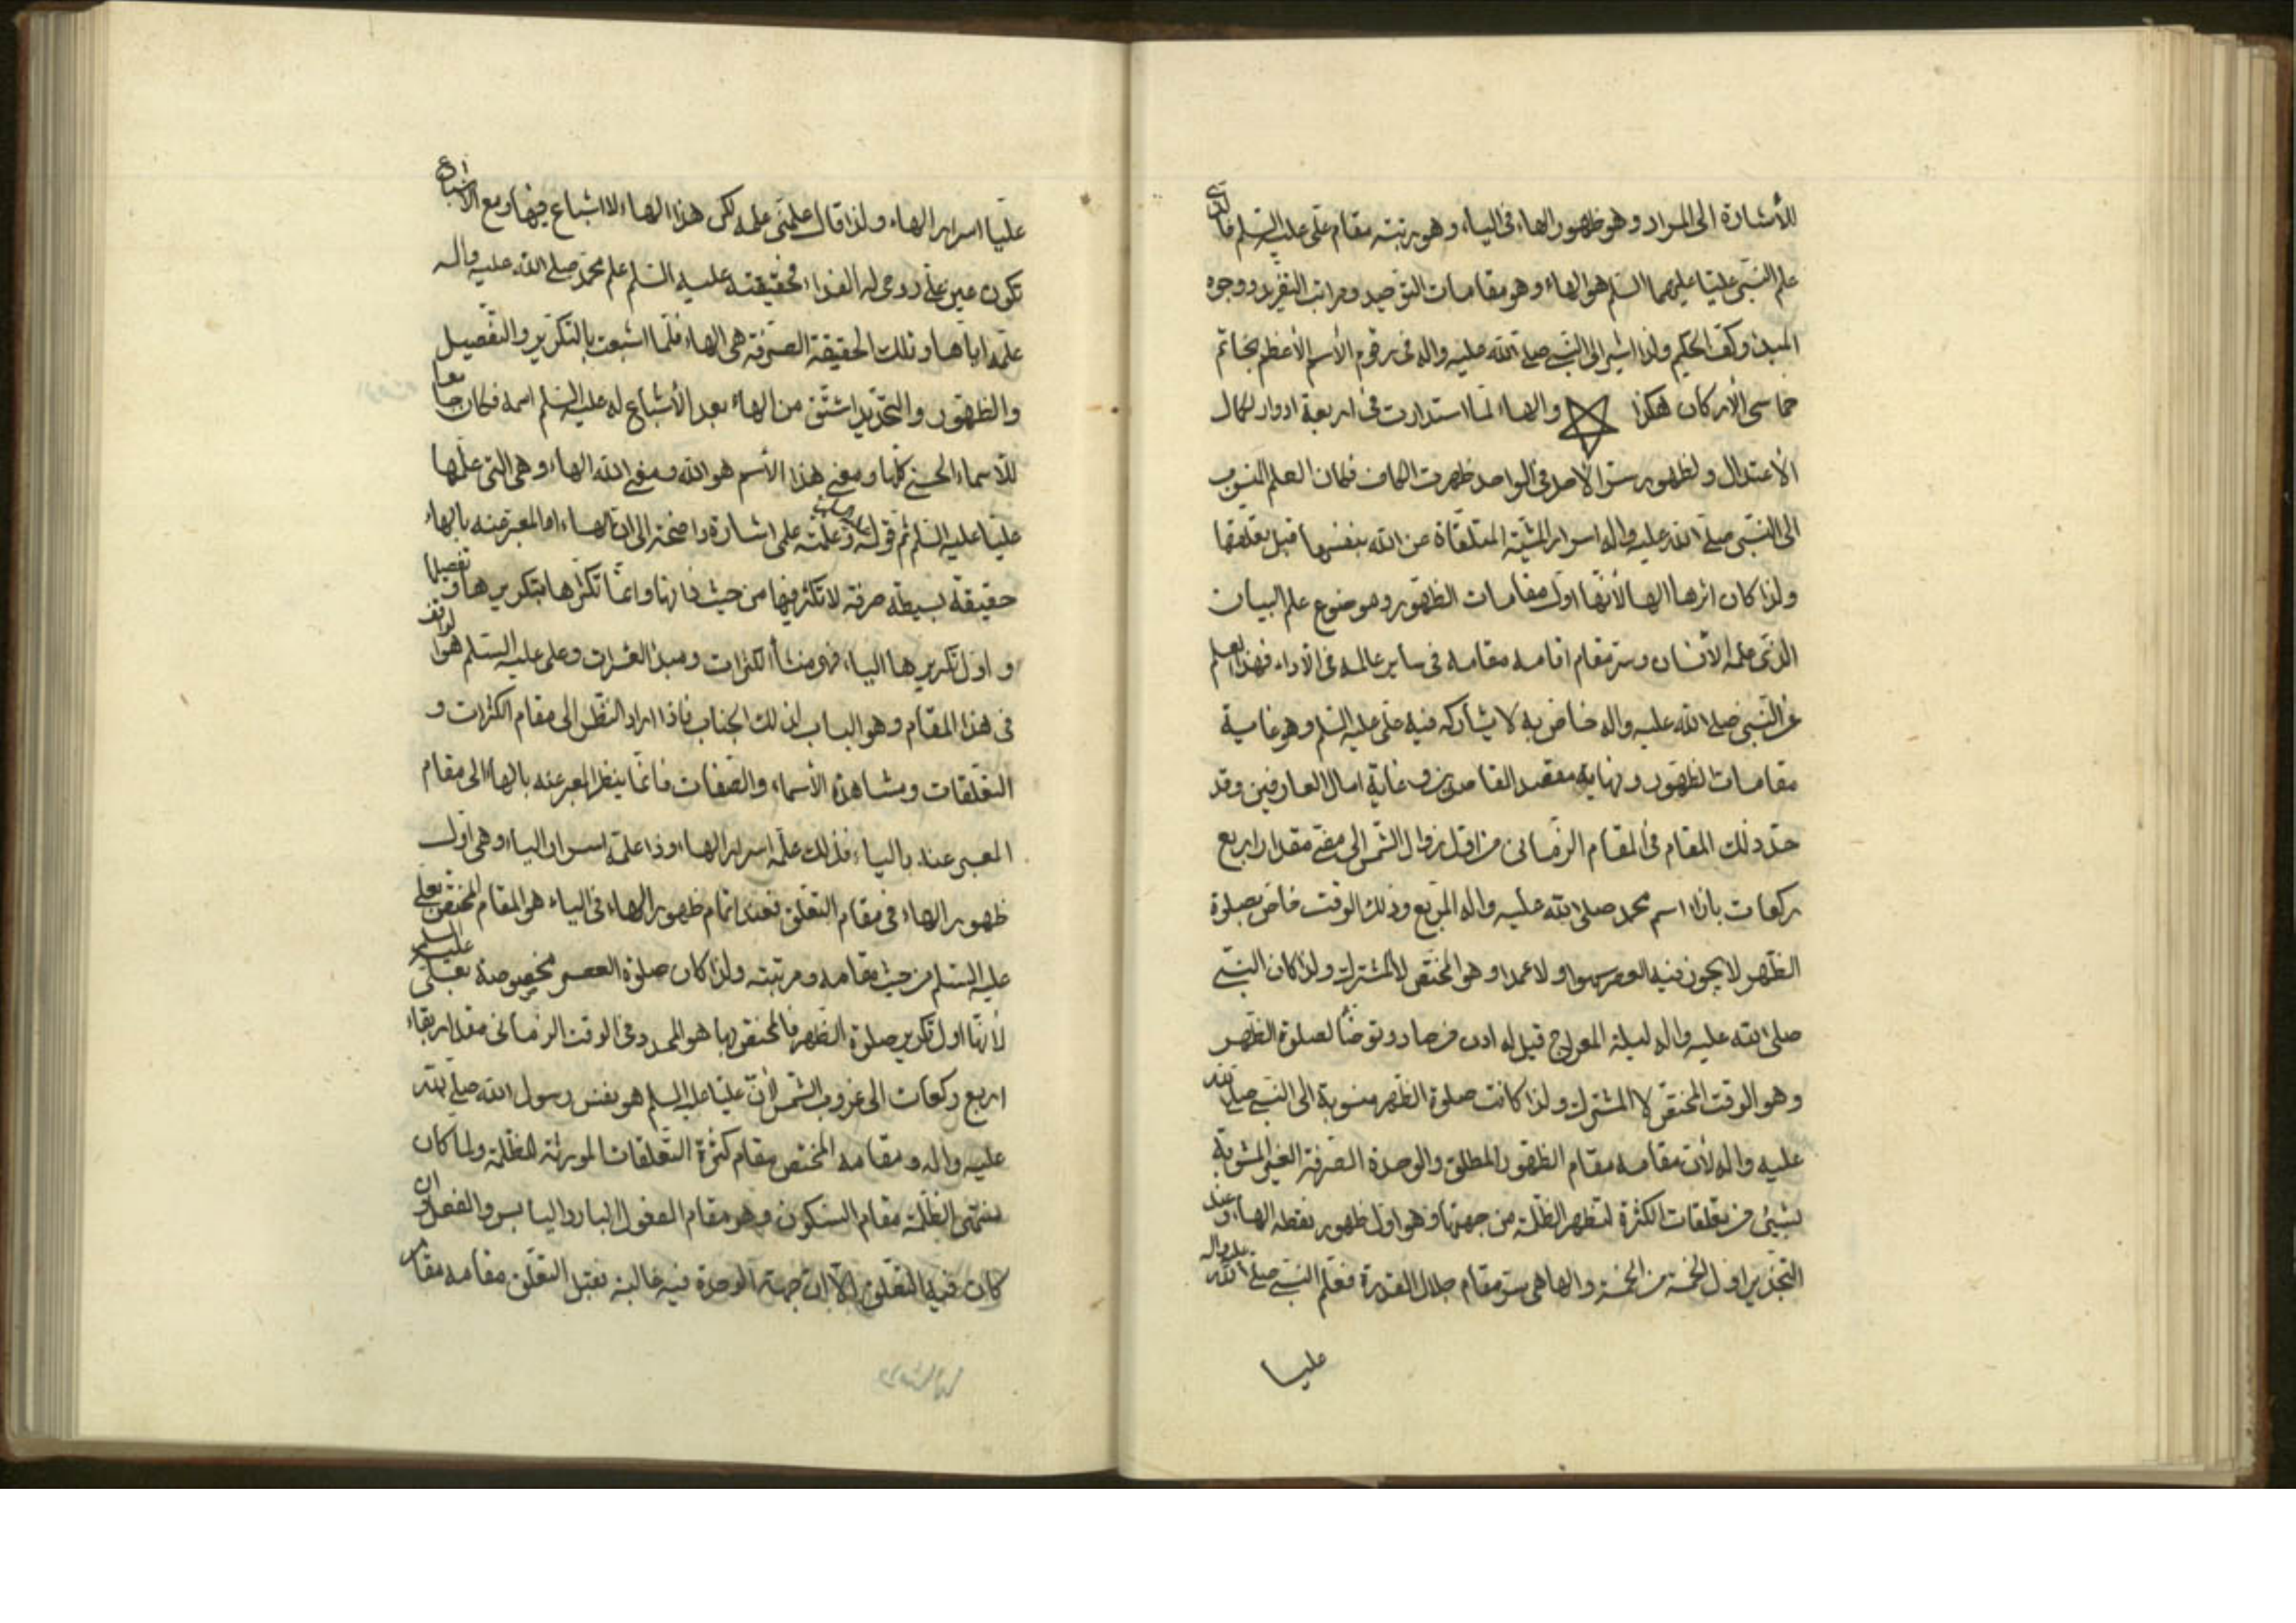 للأشارة الى المراد وهو ظهور الهاء فى الياء وهو رتبته مقام على عليه السلم فالذى
علم النبى عليا عليهما السلم هو الهاء وهو مقامات التوحيد ومراتب التفريد ووجوه
المبدء وكف الحكيم ولذا اشير الى النبى صلى الله عليه واله فى رقوم الأسم الأعظم بخاتم
خماسى الأركان هكذا والهاء لما استدارت فى اربعة ادوار لكمال
الأعتدال ولظهور سر الأحد فى الواحد ظهرت الكاف فكان العلم المنسوب
الى النبى صلى الله عليه واله اسرار المشية المتلقاة من الله بنفسها قبل تعلقها
ولذا كان اثرها الها لأنها اول مقامات الظهور وهو موضوع علم البيان
الذى علمه الأنسان وسر مقام اقامه مقامه فى ساير عالمه فى الأداء فهذا العلم
عن النبى صلى الله عليه واله خاص به لا يشاركه فيه على عليه السلم وهو غاية
مقامات الظهور ونهاية مقصد القاصدين وغاية امال العارفين وقد
حدد ذلك المقام فى المقام الزمانى من اول زوال الشمس الى مضى مقدار اربع
ركعات بازاء اسم محمد صلى الله عليه واله المربع وذلك الوقت خاص بصلوة
الظهر لا يجوز فيه العصر سهوا ولا عمدا وهو المختص لا المشترك ولذا كان النبى
صلى الله عليه واله ليلة المعراج قيل له ادن من صاد وتوضأ لصلوة الظهر
وهو الوقت المختص لا المشترك ولذا كانت صلوة الظهر منسوبة الى النبى صلى الله
عليه واله لأن مقامه مقام الظهور المطلق والوحدة الصرفة الغير المشوبة
بشيئ من تعلقات الكثرة لتظهر الظلمة من جهتها وهو اول ظهور نقطة الهاء وعند
التجذير اول الخمسة من الخمسة والها هى سر مقام جلال القدرة فعلم النبى صلى الله عليه واله
عليا
عليا اسرار الهاء ولذا قال علمنى علمه لكن هذا الهاء لا اشباع فيها ومع الأشباع
تكون عين على روحى له الفداء فحقيقته عليه السلم علم محمد صلى الله عليه واله
علمه اياها وتلك الحقيقة الصرفة هى الهاء فلما اشبعت بالتكرير والتفصيل
والظهور والتحديد اشتق من الهاء بعد الأشباع له عليه السلم اسمه فكان جامعا
للأسماء الحسنى كلها ومعنى هذا الأسم هو الله ومعنى الله الهاء وهى التى علمها
عليا عليه السلم ثم قوله وعلمته علمى اشارة واضحة الى ان الهاء المعبر عنه بالهاء
حقيقة بسيطة صرفة لا تكثر فيها من حيث ذاتها وانما تكثرها بتكريرها وتفصيلها
و اول تكريرها الياء فهو منشأ الكثرات ومبدء العشرات وعلى عليه السلم هو الواقف
فى هذا المقام وهو الباب لذلك الجناب فاذا اراد النظر الى مقام الكثرات و
التعلقات ومشاهدة الأسماء والصفات فانما ينظر المعبر عنه بالهاء الى مقام
المعبر عنه بالياء فذلك علمه اسرار الهاء وذا علمه اسرار الياء وهى اول
ظهور الهاء فى مقام التعلق فعند اتمام ظهور الهاء فى الياء هو المقام المختص بعلى
عليه السلم من حيث مقامه ومرتبته ولذا كان صلوة العصر مخصوصة بعلى عليه السلم
لأنها اول تكرير صلوة الظهر فالمختص بها هو المحدود فى الوقت الزمانى مقدار بقاء
اربع ركعات الى غروب الشمس لأن عليا عليه السلم هو نفس رسول الله صلى الله
عليه واله ومقامه المختص مقام كثرة التعلقات المورثة للظلمة ولما كان
منتهى الظلمة مقام السكون وهو مقام المفعول البارد اليابس والفعل وان
كان فيه التعلق الا ان جهة الوحدة فيه غالبة فقبل التعلق مقامه مقام